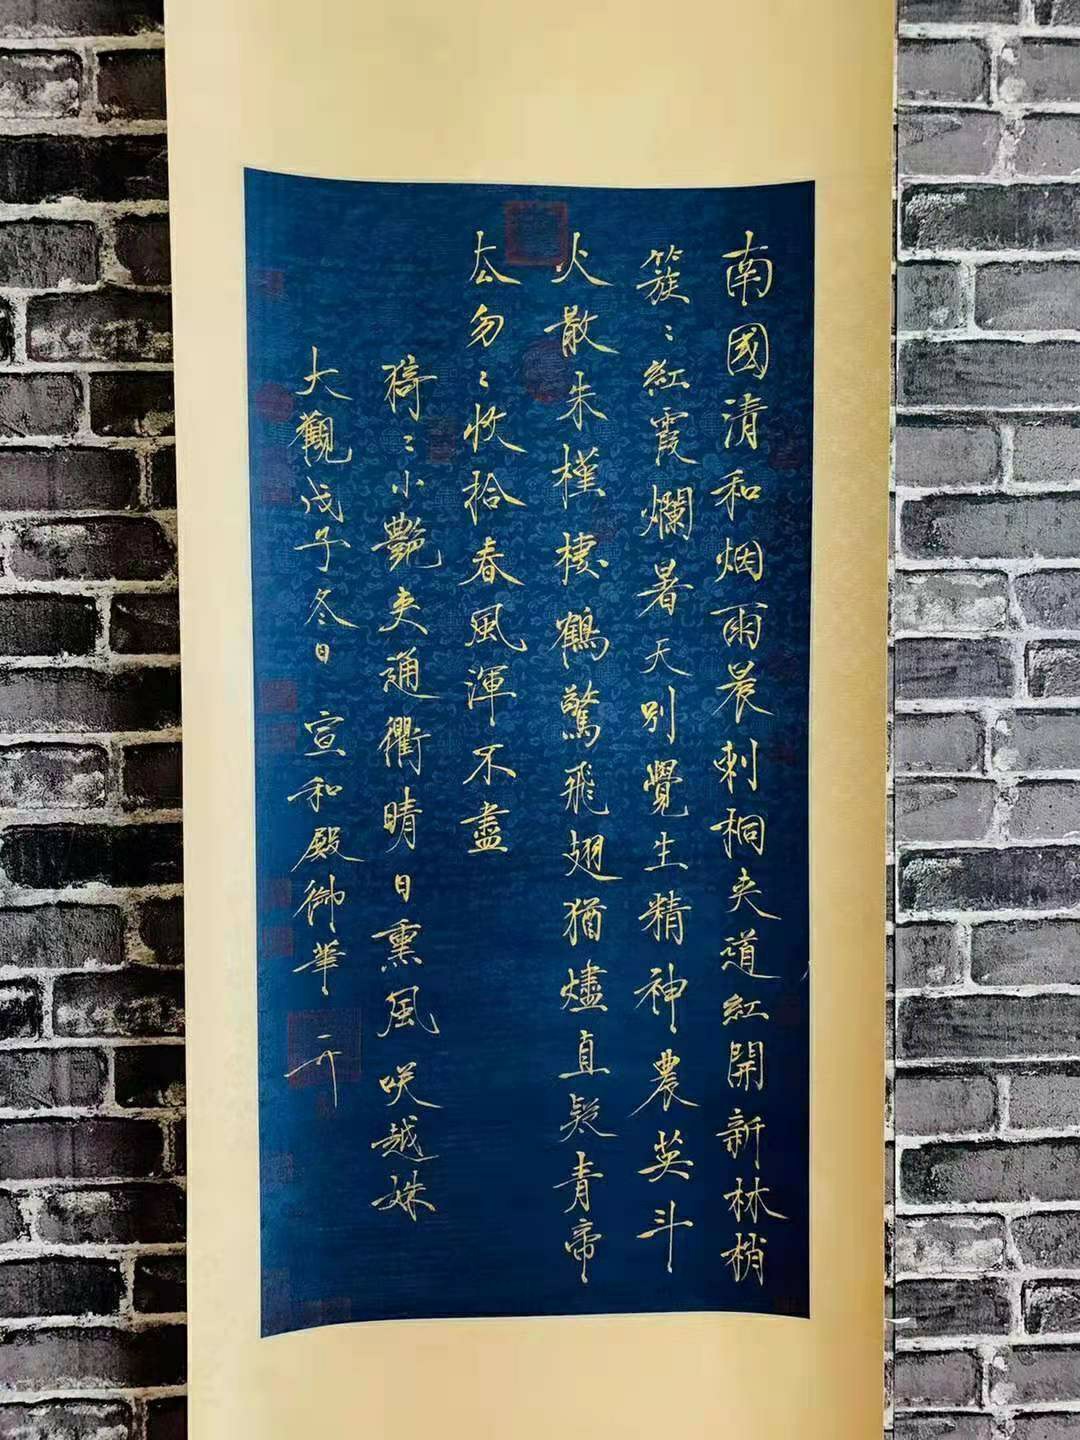 南國清和烟雨晨刺桐夾道紅開新林梢
簇〻紅霞爛暑天別覺生精神農英斗
火散朱槿棲鶴驚飛翅猶燼直疑青帝
去勿〻收拾春風渾不盡
猗〻小艷夾通衢晴日熏風咲越姝
大觀戊子冬日 宣和殿御筆